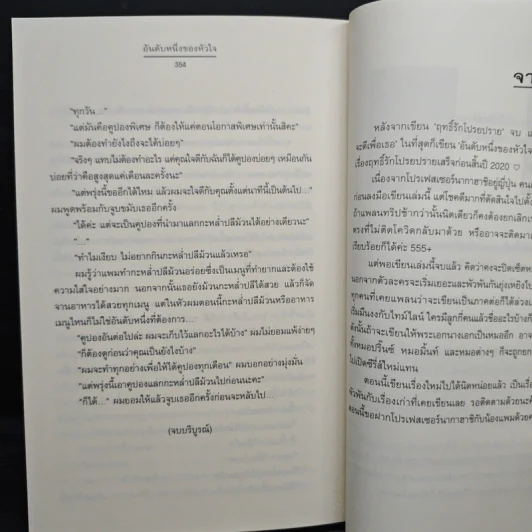 อันดับหนึ่งของหัวใจ
354
"ทุกวัน..."
"แต่มันคือคูปองพิเศษ ก็ต้องให้แค่ตอนโอกาสพิเศษเท่านั้นสิคะ"
"ผมต้องทำยังไงถึงจะได้บ่อยๆ"
"จริงๆ แทบไม่ต้องทำอะไร แค่คุณใจดีกับฉันก็ได้คูปองบ่อยๆ เหมือนกัน
บ่อยที่ว่าคือสูงสุดแค่เดือนละครั้งนะ"
"แต่พรุ่งนี้ขออีกได้ไหม แล้วผมจะใจดีกับคุณตั้งแต่นาทีนี้เป็นต้นไป..."
ผมพูดพร้อมกับจูบขมับเธออีกครั้ง
"ได้ค่ะ แต่จะเป็นคูปองที่นำมาแลกกะหล่ำปลีม้วนได้อย่างเดียวนะ"
"..."
"ทำไมเงียบ ไม่อยากกินกะหล่ำปลีม้วนแล้วเหรอ"
ผมรู้ว่าแพมทำกะหล่ำปลีม้วนอร่อยซึ่งเป็นเมนูที่ทำยากและต้องใช้
ความใส่ใจอย่างมาก นอกจากนั้นเธอยังม้วนกะหล่ำปลีได้สวย แล้วก็จัด
จานอาหารได้สวยทุกเมนู แต่ในหัวผมตอนนี้กะหล่ำปลีม้วนหรืออาหาร
เมนูไหนก็ไม่ใช่อันดับหนึ่งที่ต้องการ...
"คูปองอันต่อไปล่ะ ผมจะเก็บไว้แลกอะไรได้บ้าง" ผมไม่ยอมแพ้ง่ายๆ
"ก็ต้องดูก่อนว่าคุณเป็นยังไงบ้าง"
"ผมจะทำทุกอย่างเพื่อให้ได้คูปองทุกเดือน" ผมบอกอย่างมุ่งมั่น
"แต่พรุ่งนี้เอาคูปองแลกกะหล่ำปลีม้วนไปก่อนนะคะ"
"ก็ได้..." ผมยอมให้แล้วจูบเธออีกครั้งก่อนจะหลับไป...
(จบบริบูรณ์)
จา
หลังจากเขียน 'ฤทธิ์รักโปรยปราย' จบ แ
จะดีเพื่อเธอ' ในที่สุดก็เขียน 'อันดับหนึ่งของหัวใจ
เรื่องฤทธิ์รักโปรยปรายเสร็จก่อนสิ้นปี 2020 ♡
เนื่องจากโปรเฟสเซอร์นากาฮาชิอยู่ญี่ปุ่น คน
ก่อนลงมือเขียนเล่มนี้ แต่โชคดีมากที่ตัดสินใจไปตั้ง
ถ้าแพลนทริปช้ากว่านั้นนิดเดียวก็คงต้องยกเลิก
ตรงที่ไม่ติดโควิดกลับมาด้วย หรืออาจจะติดมา
เรียบร้อยก็ได้ค่ะ 555+
แต่พอเขียนเล่มนี้จบแล้ว คิดว่าคงจะปิดเซ็ต
นอกจากตัวละครจะเริ่มเยอะและพัวพันกันยุ่งเหยิง
ทุกคนที่เคยแพลนว่าจะเขียนเป็นภาคต่อก็ได้ล่วง
เริ่มมึนงงกับไทม์ไลน์ ใครมีลูกกี่คนแล้วชื่ออะไรบ้าง
ดังนั้นถ้าจะเขียนให้พระเอกนางเอกเป็นหมออีก
ทั้งหมอปริ๊นซ์ หมอมิ้นท์ และหมอต่างๆ ก็จะถูก
ไปเปิดซีรี่ส์ใหม่แทน
ตอนนี้เขียนเรื่องใหม่ไปได้นิดหน่อยแล้ว เป็น
พัวพันกับเรื่องเก่าที่เคยเขียนเลย รอติดตามด้วยนะ
ตอนนี้ขอฝากโปรเฟสเซอร์นากาฮาชิกับน้องแพมด้วย